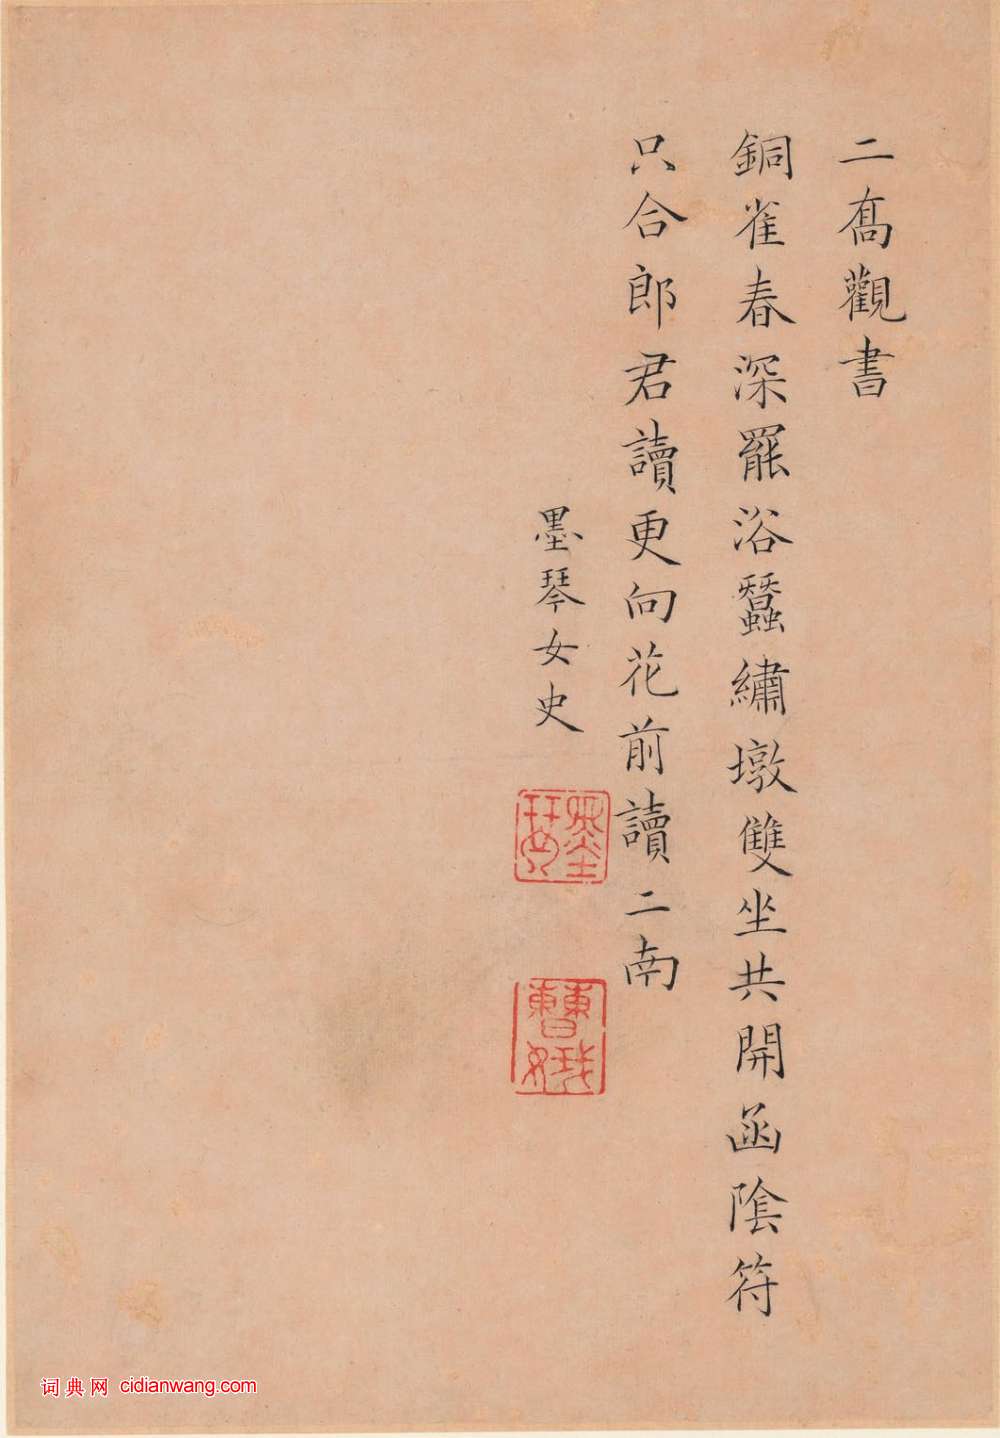 二喬觀書
銅雀春深罷浴蠶繡墩雙坐共開函陰符
只合郎君讀更向花前讀二南
墨琴女史
墨琴
曹貞秀
词典网 cidianwang.com